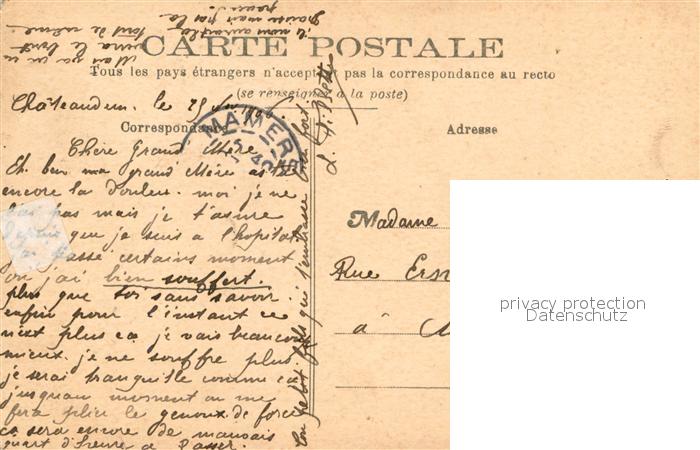 CARTE POSTALE
Tous les pays étrangers n'acceptent pas la correspondance au recto
(se renseigner à la poste)
Correspondance
Adresse
Châteaudun, le 29
MAMERS
Chère Grand Mère
Et bien ma grand Mère as tu
encore la douleur. moi je ne
pas mais je t'assure
que je suis a l'hopital
passé certains moment
ou j'ai bien souffert.
plus que toi sans savoir.
enfin pour l'instant ce
n'est plus ca je vais beaucoup
mieux. je ne souffre plus
je serai tranquille comme ca
jusquau moment ou me
fera plier le genoux de force
ca sera encore de mauvais
quart d'heure a passer.
Ton petit fils qui t'embrasse bien fort
Madame
Rue Ern
à
privacy protection
Datenschutz